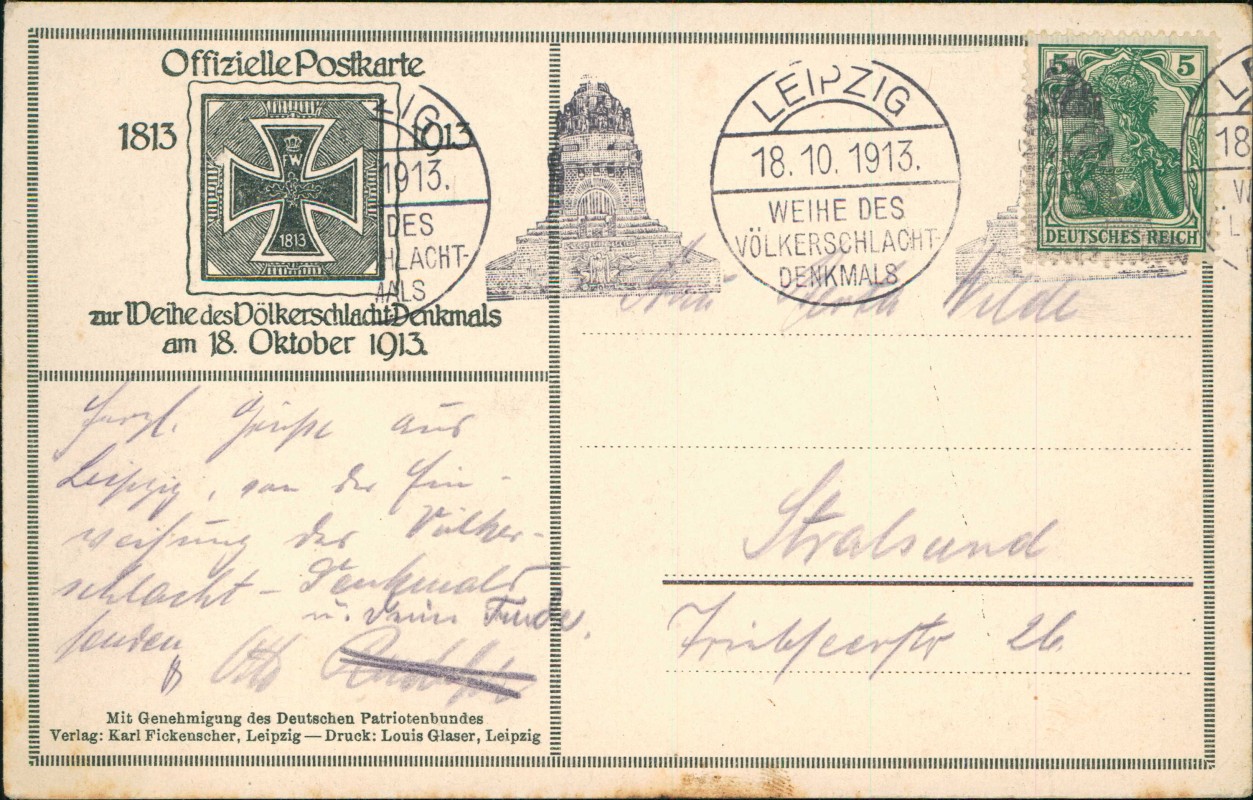 Offizielle Postkarte
1813 1913
FW
1813
zur Weihe des Völkerschlacht Denkmals
am 18. Oktober 1913.
ZIG
1913.
DES
HLACHT-
MALS
LEIPZIG
18. 10. 1913.
WEIHE DES
VÖLKERSCHLACHT-
DENKMALS
5 5
DEUTSCHES REICH
LE
18
Frau Wilde
Herzl. Grüße aus
Leipzig, von der Ein-
weihung des Völker-
schlacht-Denkmals
senden
Otto
u. Deine
Stralsund
Tribseerstr 26.
Mit Genehmigung des Deutschen Patriotenbundes
Verlag: Karl Fickenscher, Leipzig — Druck: Louis Glaser, Leipzig